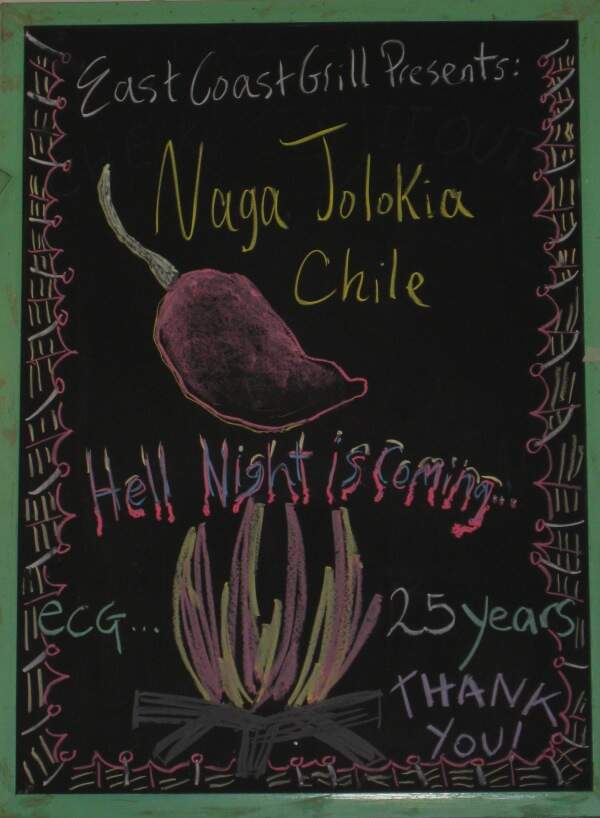 East Coast Grill Presents:
Naga Jolokia
Chile
Hell Night is Coming...
ECG... 25 years
THANK
YOU!